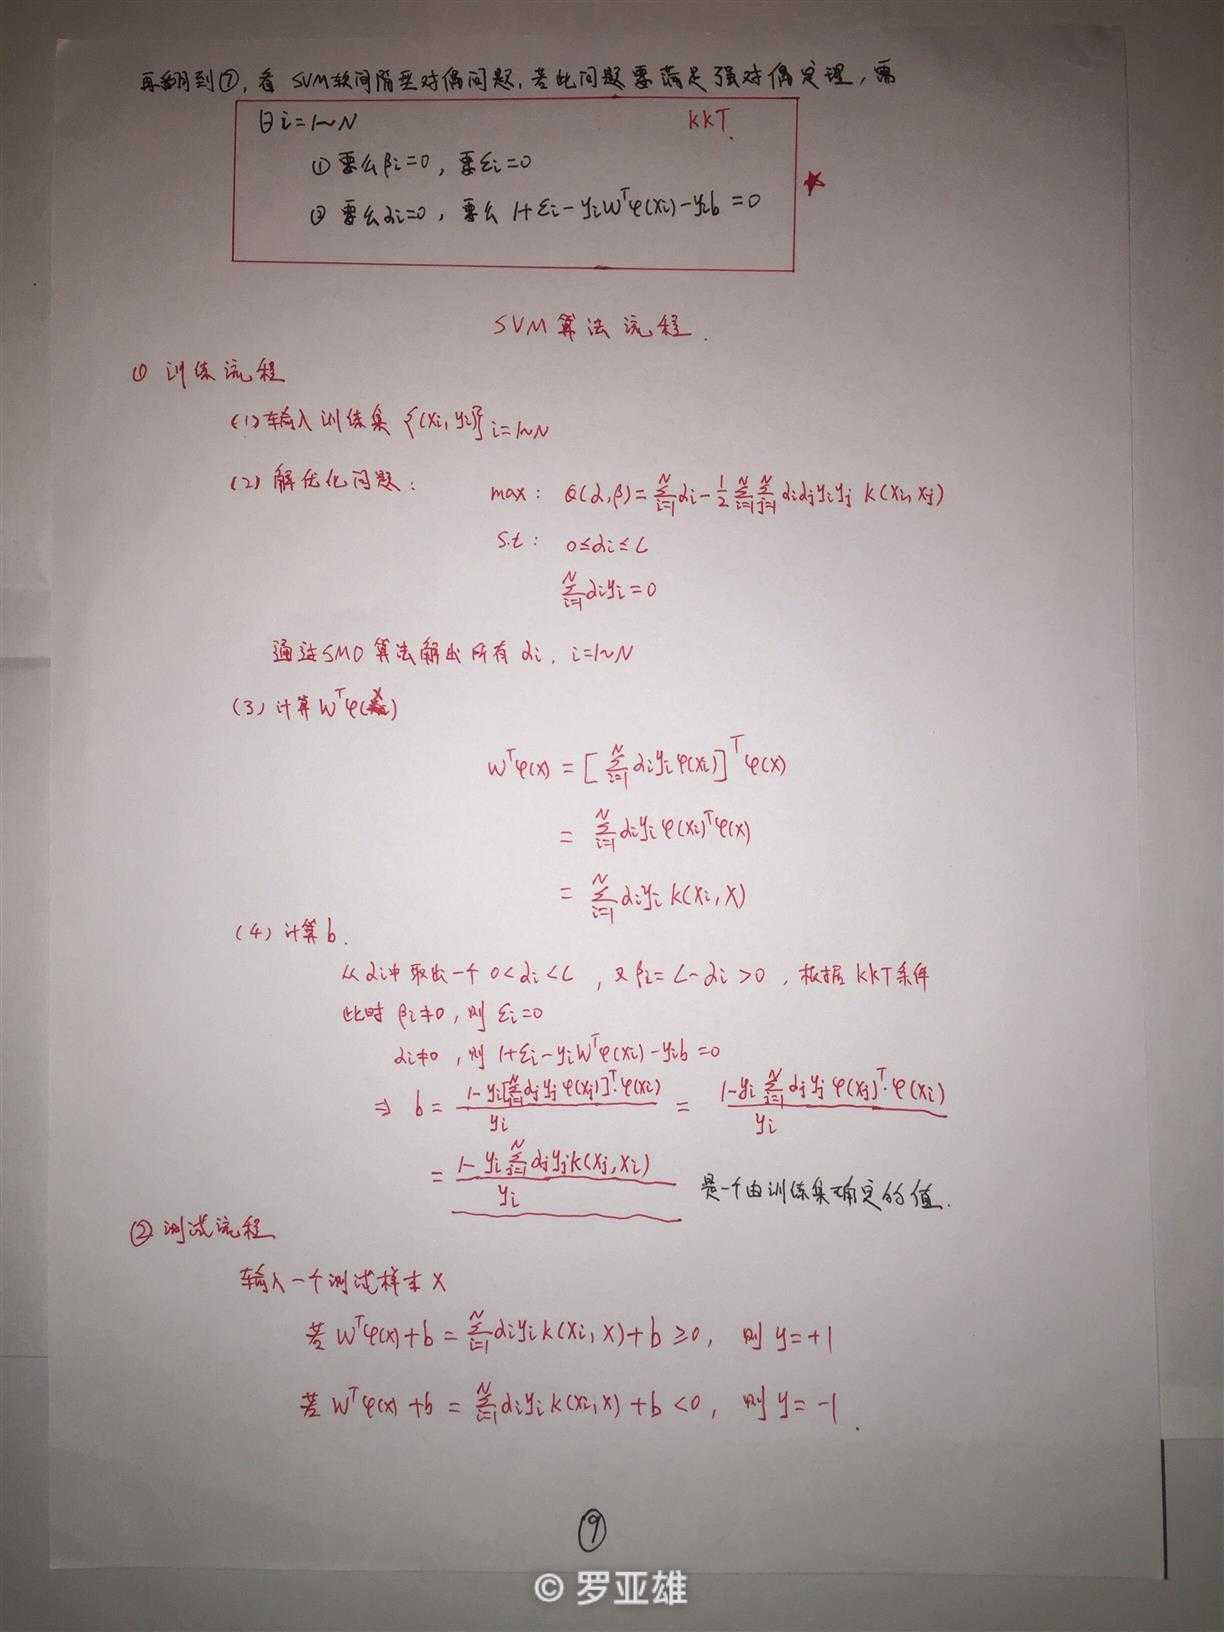 再翻到⑦,看 SVM软间隔至对偶问题,若此问题要满足强对偶定理,需
∀i=1~N KKT
① 要么βi=0,要εi=0
② 要么αi=0,要么 1+εi-yiW^Tφ(xi)-yib=0 ★
SVM算法流程.
① 训练流程
(1)输入训练集 {(xi,yi)}i=1~N
(2)解优化问题: max: Q(α,β)=∑_{i=1}^N αi-1/2∑_{i=1}^N∑_{j=1}^N αiαjyiyj K(xi,xj)
s.t: 0≤αi≤C
∑_{i=1}^N αiyi=0
通过SMO算法解出所有αi, i=1~N
(3)计算W^Tφ(x)
W^Tφ(x)=[∑_{i=1}^N αiyiφ(xi)]^Tφ(x)
=∑_{i=1}^N αiyiφ(xi)^Tφ(x)
=∑_{i=1}^N αiyiK(xi,x)
(4)计算b.
从αi中取出一个 0<αi<C, 又βi=C-αi>0, 根据KKT条件
此时 βi≠0,则 εi=0
αi≠0,则 1+εi-yiW^Tφ(xi)-yib=0
⇒ b=(1-yi[∑_{j=1}^N αjyjφ(xj)]^T·φ(xi))/yi = (1-yi∑_{j=1}^N αjyjφ(xj)^T·φ(xi))/yi
=(1-yi∑_{j=1}^N αjyjK(xj,xi))/yi 是一个由训练集确定的值.
② 测试流程
输入一个测试样本x
若W^Tφ(x)+b=∑_{i=1}^N αiyiK(xi,x)+b≥0, 则y=+1
若W^Tφ(x)+b=∑_{i=1}^N αiyiK(xi,x)+b<0, 则y=-1.
⑨
© 罗亚雄